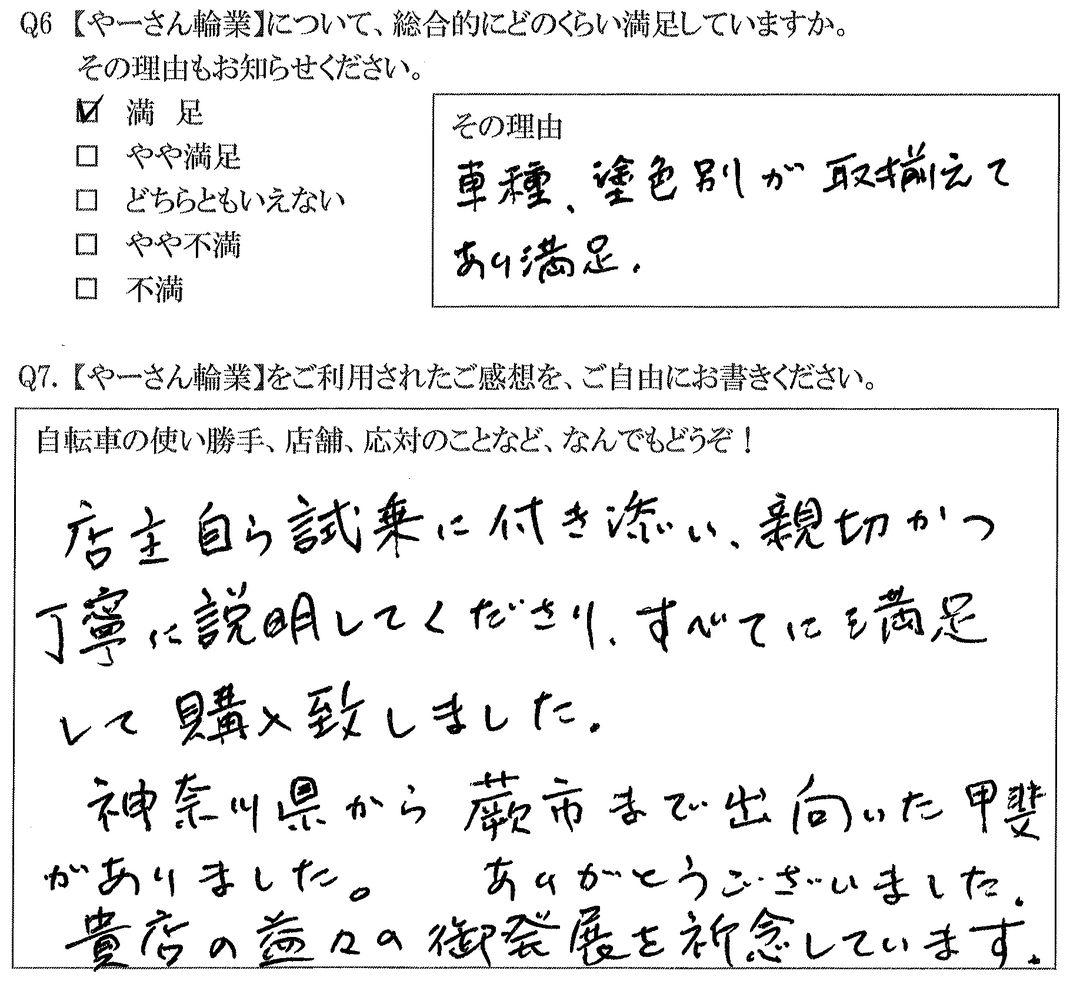 Q6 【やーさん輪業】について、総合的にどのくらい満足していますか。
その理由もお知らせください。
☑ 満 足
□ やや満足
□ どちらともいえない
□ やや不満
□ 不満
その理由
車種、塗色別が取揃えて
あり満足.
Q7. 【やーさん輪業】をご利用されたご感想を、ご自由にお書きください。
自転車の使い勝手、店舗、応対のことなど、なんでもどうぞ！
店主自ら試乗に付き添い、親切かつ
丁寧に説明してくださり、すべてにを満足
して購入致しました.
神奈川県から 蕨市まで出向いた甲斐
がありました。 ありがとうございました.
貴店の益々の御発展を祈念しています.